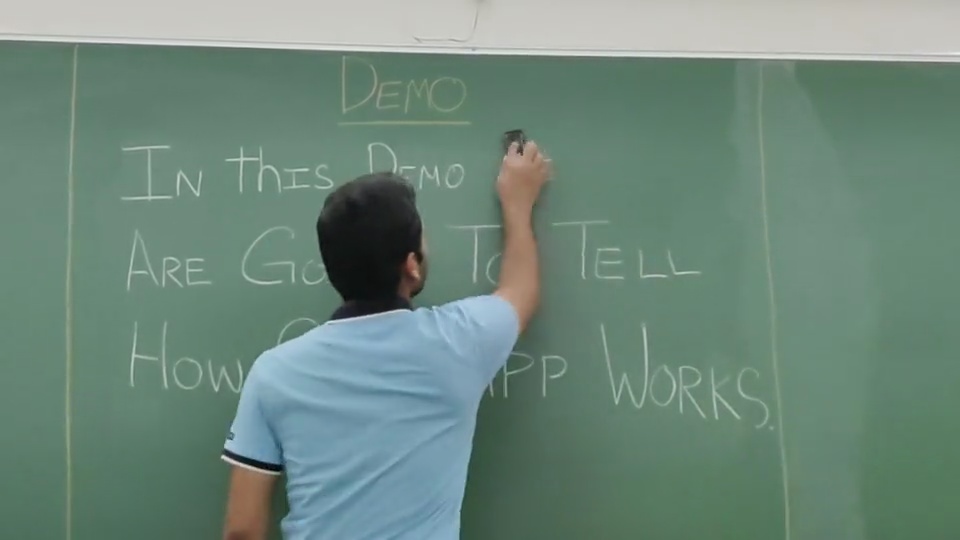 DEMO
IN thIS DEMO
ARE TO TELL
HOW WORKS.